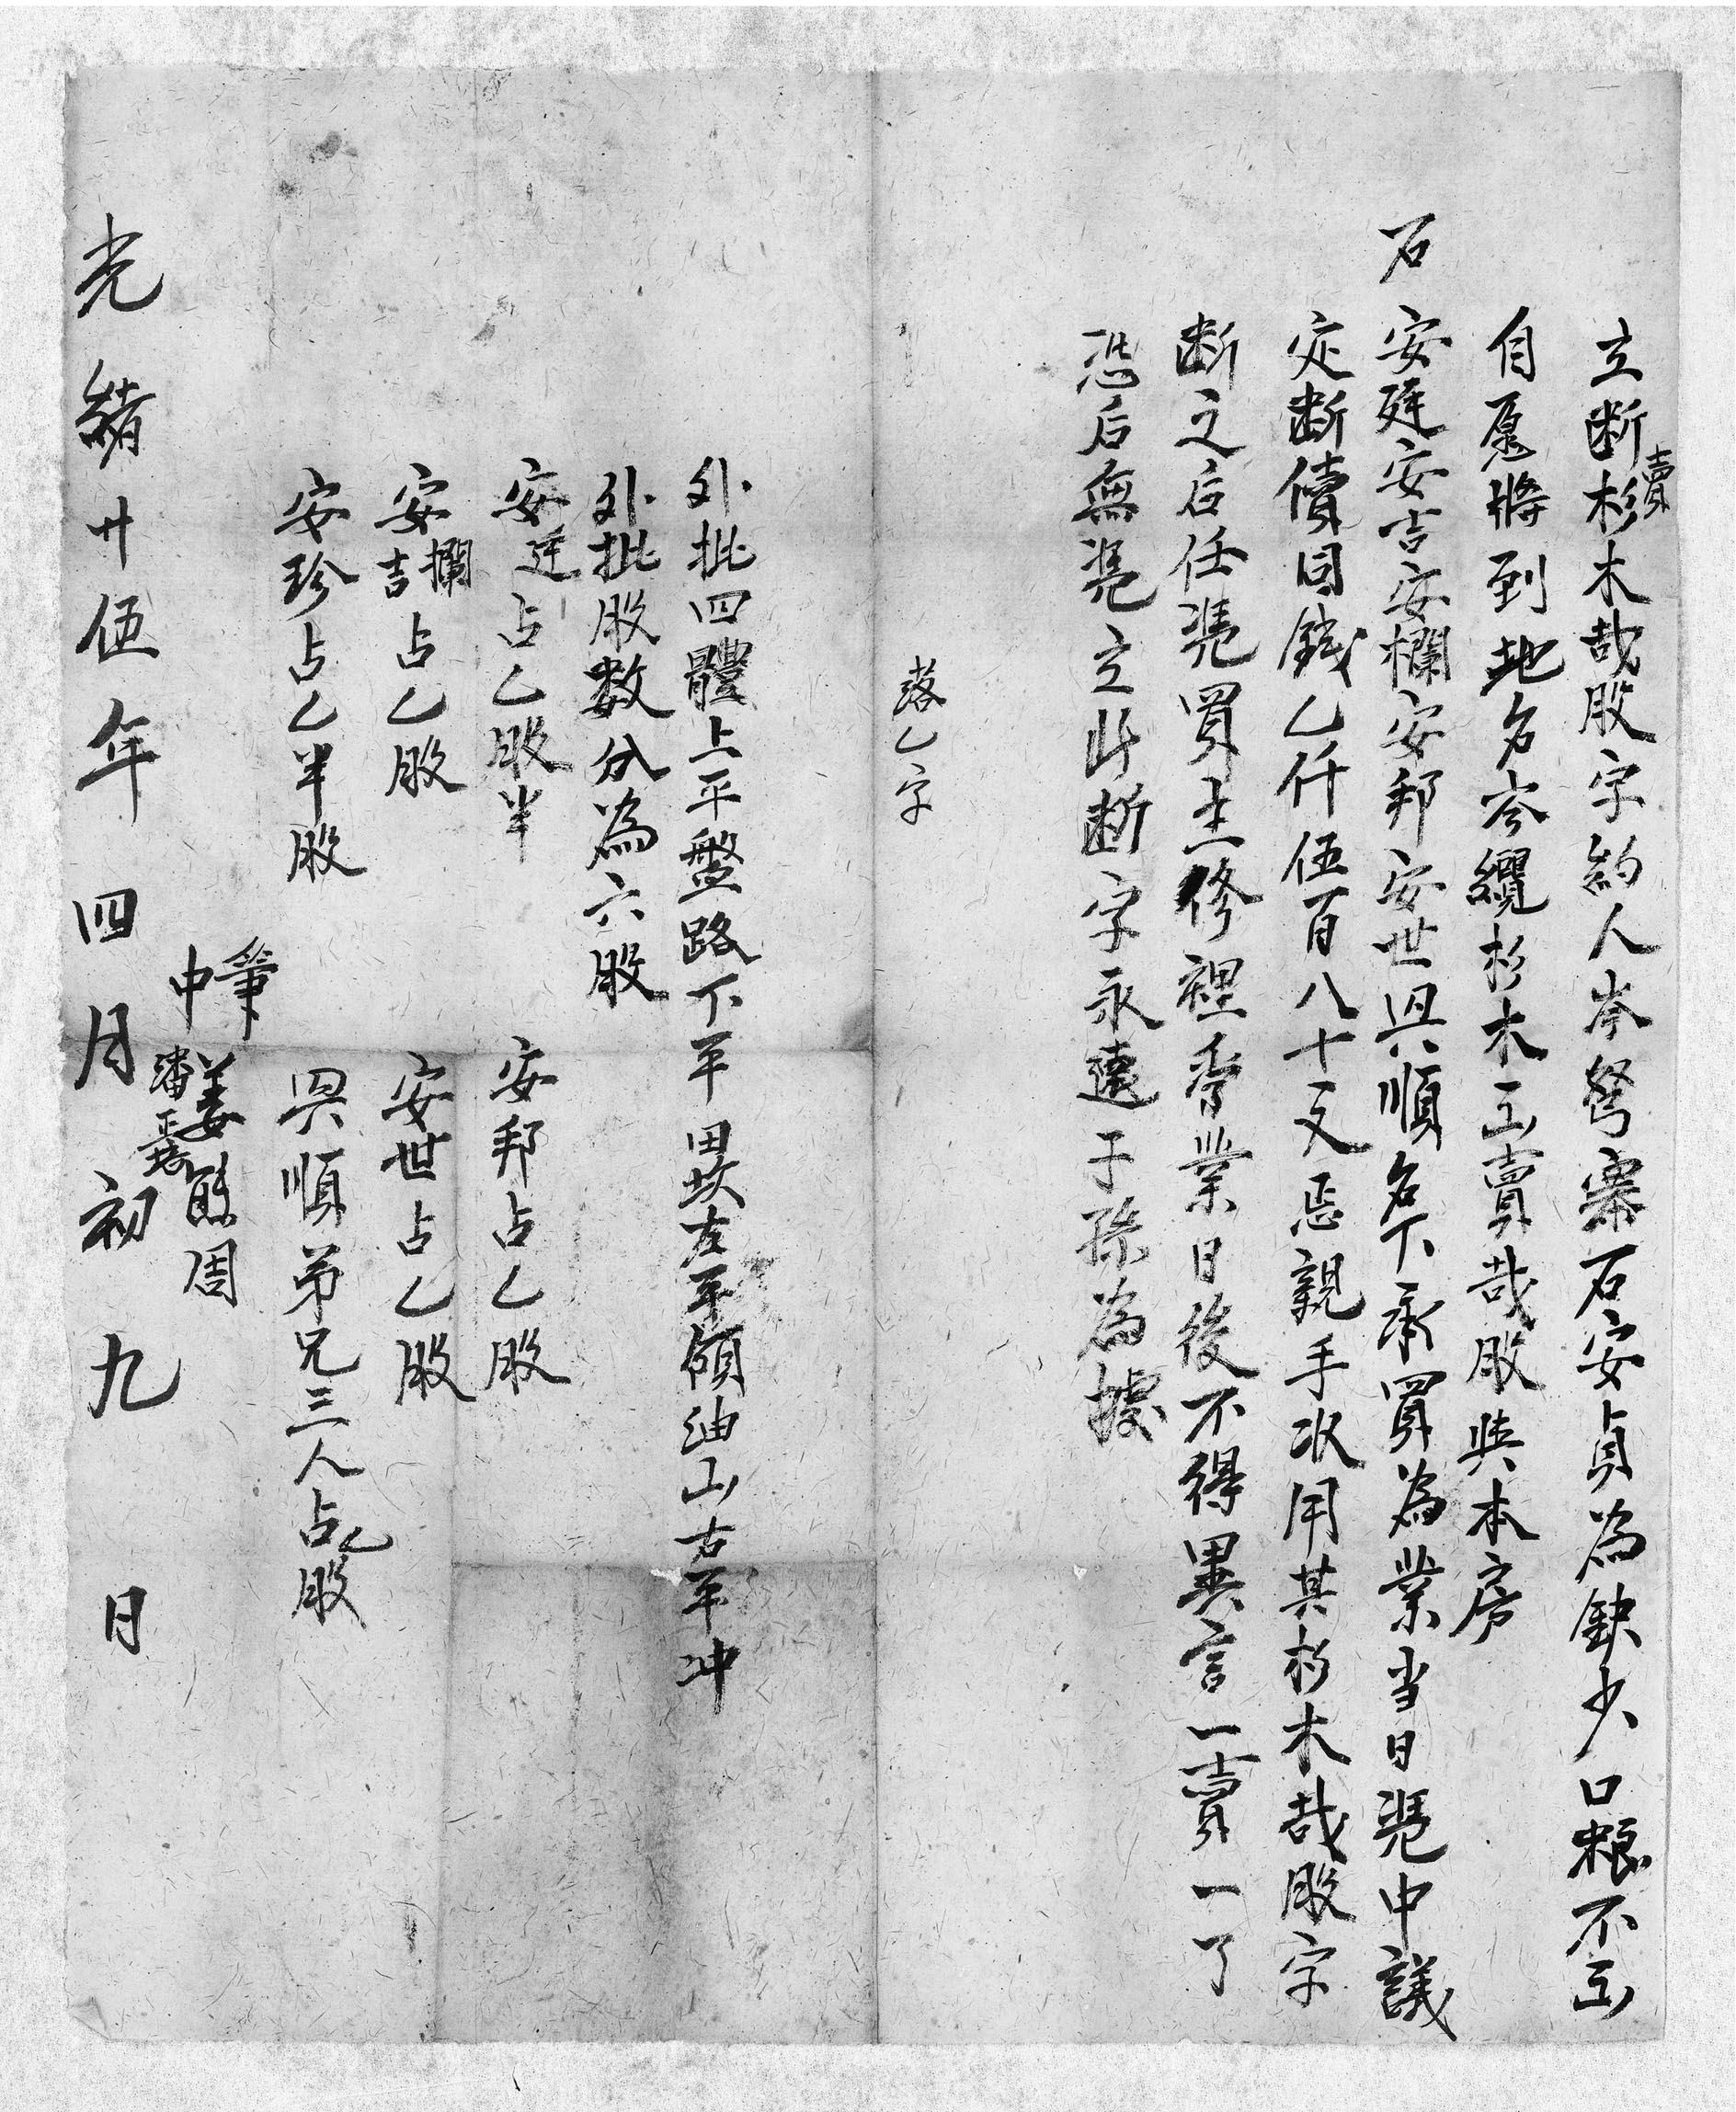 立断賣杉木哉股字約人岑努寨石安貞為缺少口粮不五
自愿將到地名岑纜杉木五賣哉股與本房
石 安廷安吉安欄安邦安世興順名下承買為業当日凴中議
定断價因錢乙仟伍百八十文忢親手收用其杉木哉股字
断之后任凴買主修裡季業日後不得異言一賣一了
恐后無凴立此断字永遠子孫為據
落乙字
外批四體上平盤路下平田坎左平領油山右平冲
外批股数分為六股
安廷占乙股半 安邦占乙股
安欄吉占乙股 安世占乙股
安珍占乙半股 興順弟兄三人占乙股
筆 姜熙周
中 潘正
光緒廿伍年四月初九日